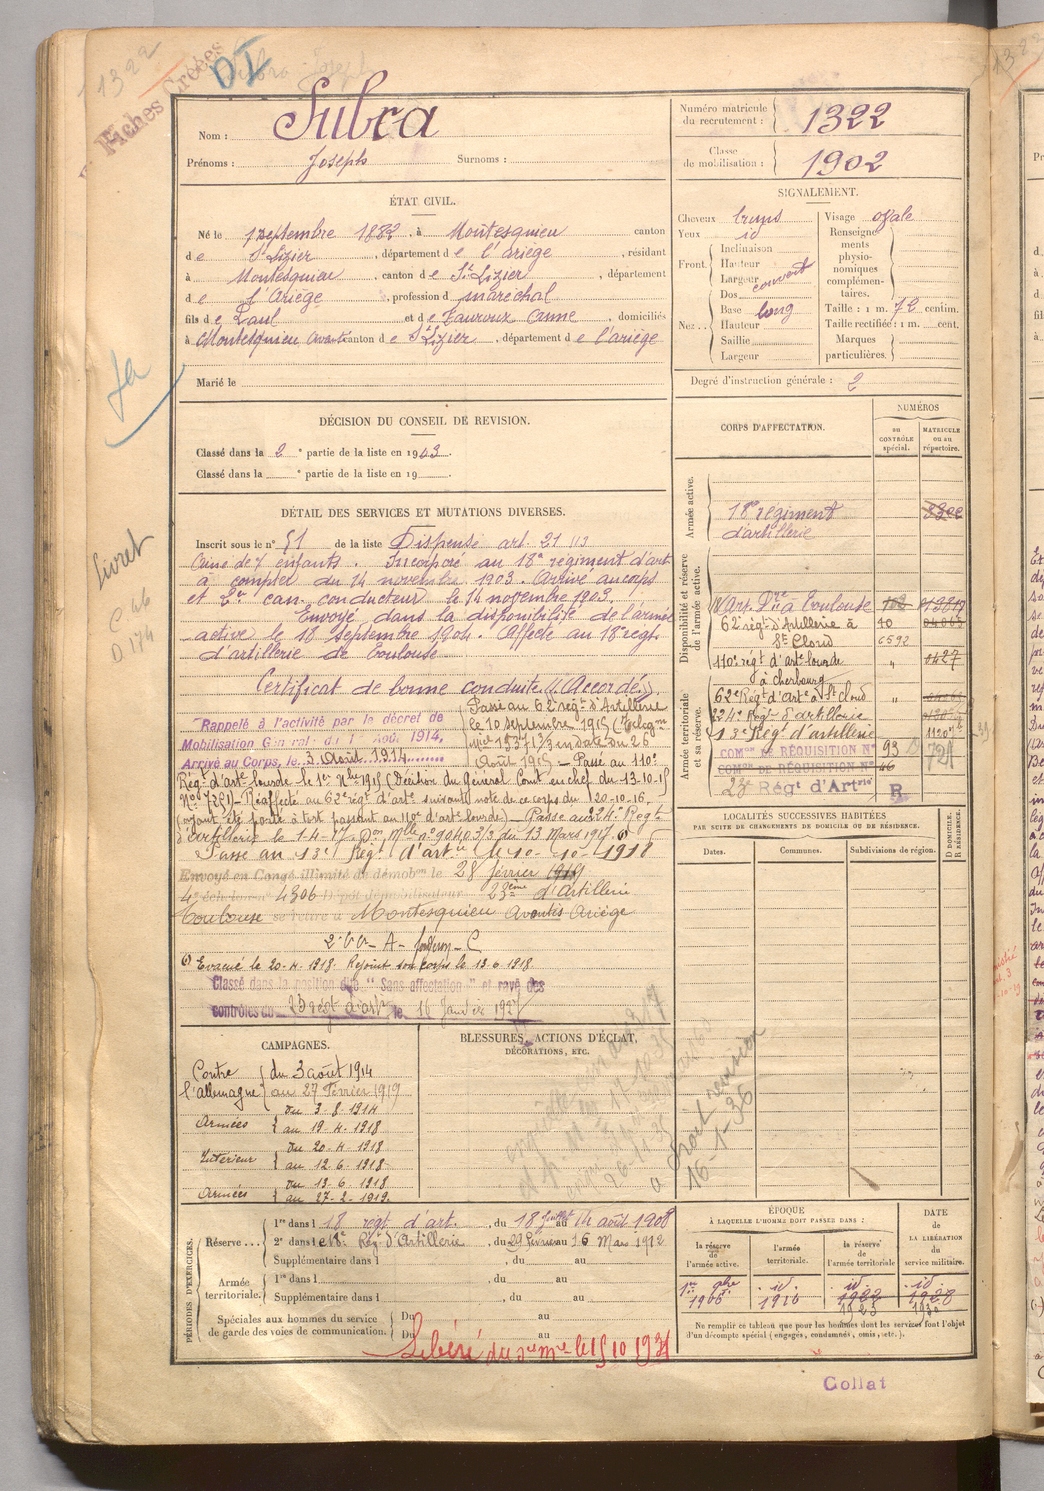 1322
Fiches Créées
DI
Subra Joseph
Nom : Subra
Prénoms : Joseph Surnoms :
Numéro matricule du recrutement : 1322
Classe de mobilisation : 1902
ÉTAT CIVIL.
Né le 1 septembre 1882, à Montesquieu canton
de St Lizier, département de l'ariège, résidant
à Montesquieu, canton de St Lizier, département
de l'Ariège, profession d maréchal
fils de Paul et de Tauroux Anne, domiciliés
à Montesquieu Avantès canton de St Lizier, département de l'ariège
Marié le
SIGNALEMENT.
Cheveux bruns
Yeux id
Front
Inclinaison
Hauteur
Largeur
Dos
couvert
Nez
Base long
Hauteur
Saillie
Largeur
Visage ovale
Renseignements physionomiques complémentaires.
Taille : 1 m. 72 centim.
Taille rectifiée : 1 m. cent.
Marques particulières.
Degré d'instruction générale : 2
Ja
DÉCISION DU CONSEIL DE REVISION.
Classé dans la 2e partie de la liste en 1903.
Classé dans la e partie de la liste en 19
DÉTAIL DES SERVICES ET MUTATIONS DIVERSES.
Inscrit sous le n° 51 de la liste Dispensé art. 21
Ainé de 7 enfants. Incorporé au 18e régiment d'art
à compter du 14 novembre 1903. Arrivé au corps
et 2e can. conducteur le 14 novembre 1903.
Envoyé dans la disponibilité de l'armée
active le 18 Septembre 1904. Affecté au 18e régt
d'artillerie de Toulouse
Certificat de bonne conduite "Accordé".
Rappelé à l'activité par le décret de
Mobilisation Générale du 1er Août 1914,
Arrivé au Corps, le 3 Août 1914
Passé au 62e régt d'Artillerie
le 10 septembre 1915 (Télégme
n° 1537 1/3 en date du 26
Août 1915 - Passé au 110e
Régt d'arte lourde le 1er Nbre 1915 (Décision du Général Comt en chef du 13-10-15
N° 7251) - Réaffecté au 62e régt d'arte suivant note de ce corps du 20-10-16,
(ayant été porté à tort passant au 110e d'arte lourde) - Passé au 224e Regt
d'artillerie le 1-4-17 - Don Mlle n° 9040 3/3 du 13 Mars 1917. (1)
Passé au 13e Régt d'arte le 10-10-1918
Envoyé en Congé illimité de démobon le 28 février 1919
4e échelon n° 4306 Dépôt démobilisateur 23ème d'Artillerie
Toulouse se retire à Montesquieu Avantès Ariège
(1) Evacué le 20-4-1918. Rejoint son corps le 13-6-1918
Classé dans la position dite "Sans affectation" et rayé des
contrôles du 23 régt d'art le 16 Janvier 1927
Livret
C 46
D 174
CORPS D'AFFECTATION.
NUMÉROS
au CONTRÔLE spécial.
MATRICULE ou au répertoire.
Armée active.
18e régiment d'artillerie
Disponibilité et réserve de l'armée active.
18 Art. Dre à Toulouse
62e régt d'Artillerie à St Cloud 40
6592
110e régt d'arte lourde à cherbourg " 0427
Armée territoriale et sa réserve.
62e Régt d'Arte à St Cloud "
224e Régt d'artillerie
13e Régt d'artillerie
COMon DE RÉQUISITION N° 93
COMon DE RÉQUISITION N° 46
724
23e Régt d'Artrie R
LOCALITÉS SUCCESSIVES HABITÉES
PAR SUITE DE CHANGEMENTS DE DOMICILE OU DE RÉSIDENCE.
Dates.
Communes.
Subdivisions de région.
D DOMICILE. R RÉSIDENCE.
CAMPAGNES.
Contre l'allemagne du 3 août 1914
au 27 Février 1919
Armées du 3-8-1914
au 19-4-1918
Intérieur du 20-4-1918
au 12-6-1918
Armées du 13-6-1918
au 27-2-1919.
BLESSURES, ACTIONS D'ÉCLAT,
DÉCORATIONS, ETC.
droit revision
16-1-36
PÉRIODES D'EXERCICES.
Réserve...
1re dans l 18 régt d'art. , du 18 Juillet au 14 août 1908
2e dans le 18e Rég. d'Artillerie , du 29 Février au 16 Mars 1912
Supplémentaire dans l , du au
Armée territoriale.
1re dans l du au
Supplémentaire dans l , du au
Spéciales aux hommes du service de garde des voies de communication.
Du au
Du au
Libéré du sce mre le 15 10 1931
ÉPOQUE
À LAQUELLE L'HOMME DOIT PASSER DANS :
la réserve de l'armée active.
l'armée territoriale.
la réserve de l'armée territoriale
DATE de LA LIBÉRATION du service militaire.
1er 8bre 1906
id. 1916
id. 1922
1923
id. 1928
1930
Ne remplir ce tableau que pour les hommes dont les services font l'objet
d'un décompte spécial (engagés, condamnés, omis, etc.).
Collat